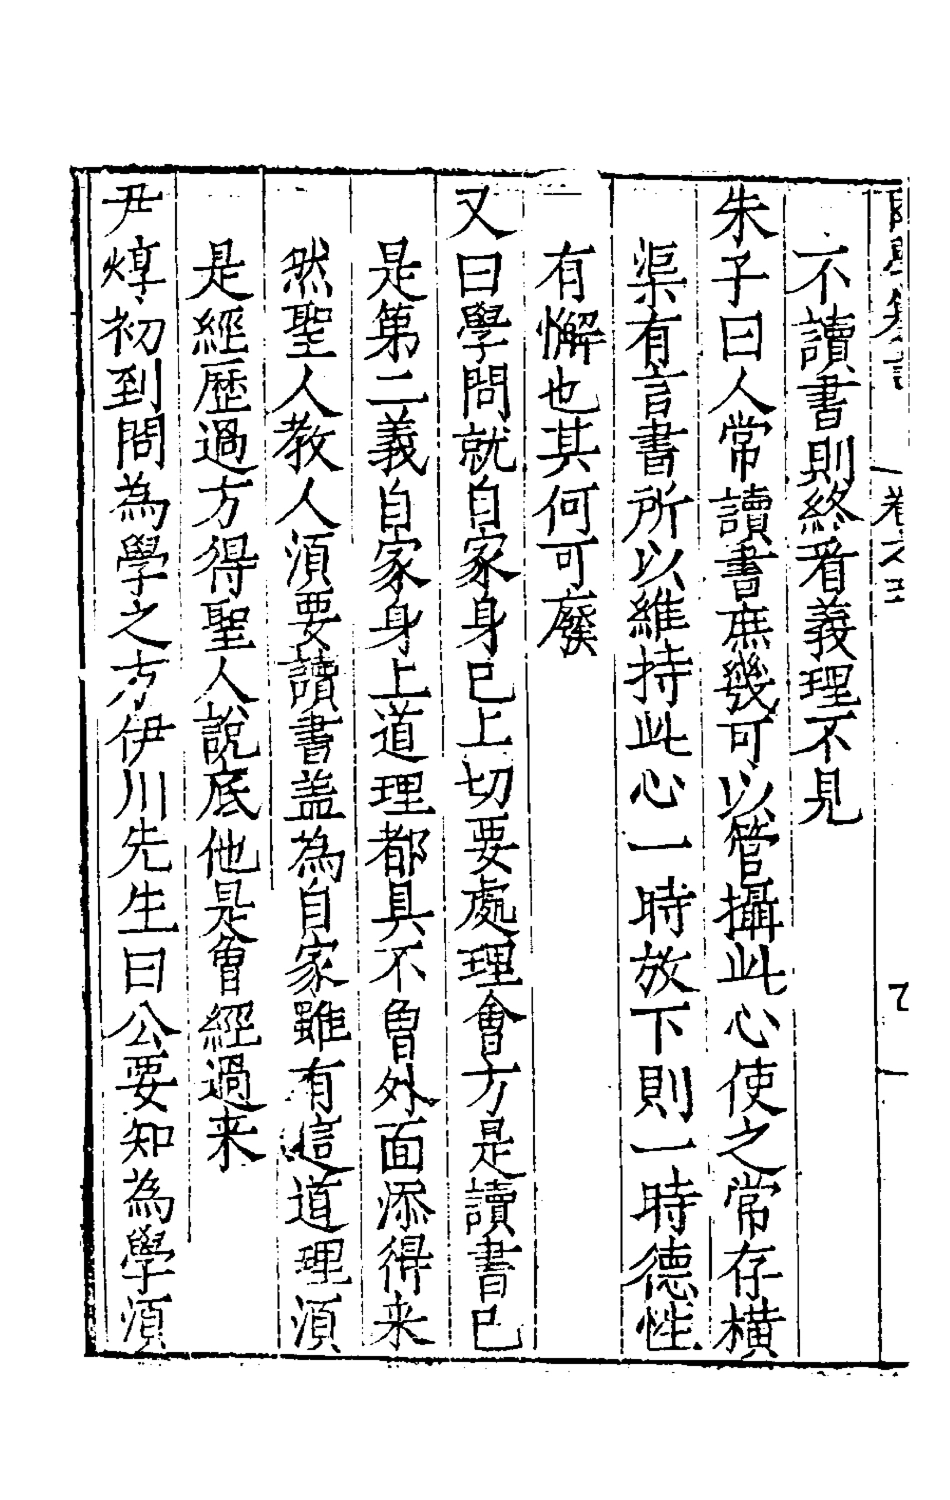 卷之三
不讀書則終看義理不見
朱子曰人常讀書庶幾可以管攝此心使之常存橫
渠有言書所以維持此心一時放下則一時德性
有懈也其何可廢
又曰學問就自家身已上切要處理會方是讀書已
是第二義自家身上道理都具不曾外面添得来
然聖人教人須要讀書盖為自家雖有這道理須
是經歷過方得聖人說底他是曾經過来
尹焞初到問為學之方伊川先生曰公要知為學須